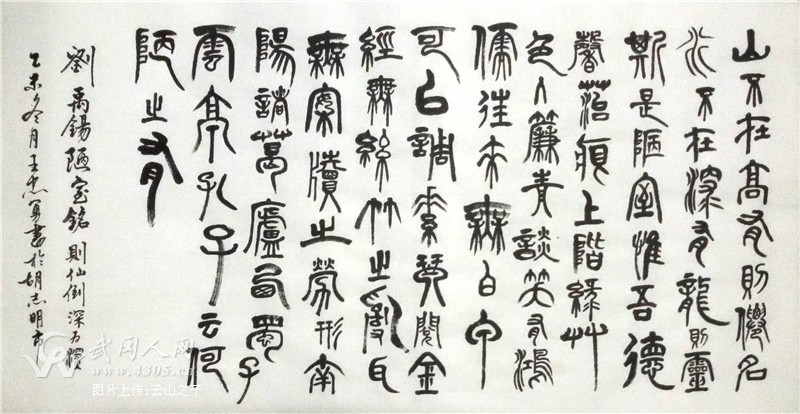 山不在高有則僊名
水不在深有龍則靈
斯是陋室惟吾德
馨苔痕上階綠艸
色入簾青談笑有鴻
儒往來無白丁
可以調素琴閱金
經無絲竹之亂耳
無案牘之勞形南
陽諸葛廬西蜀子
雲亭孔子云何
陋之有
劉禹錫陋室銘 則仙倒深
乙未冬月王忠勇書於胡志明市
武冈人网
www.4305.cn
图片上传:云山之子